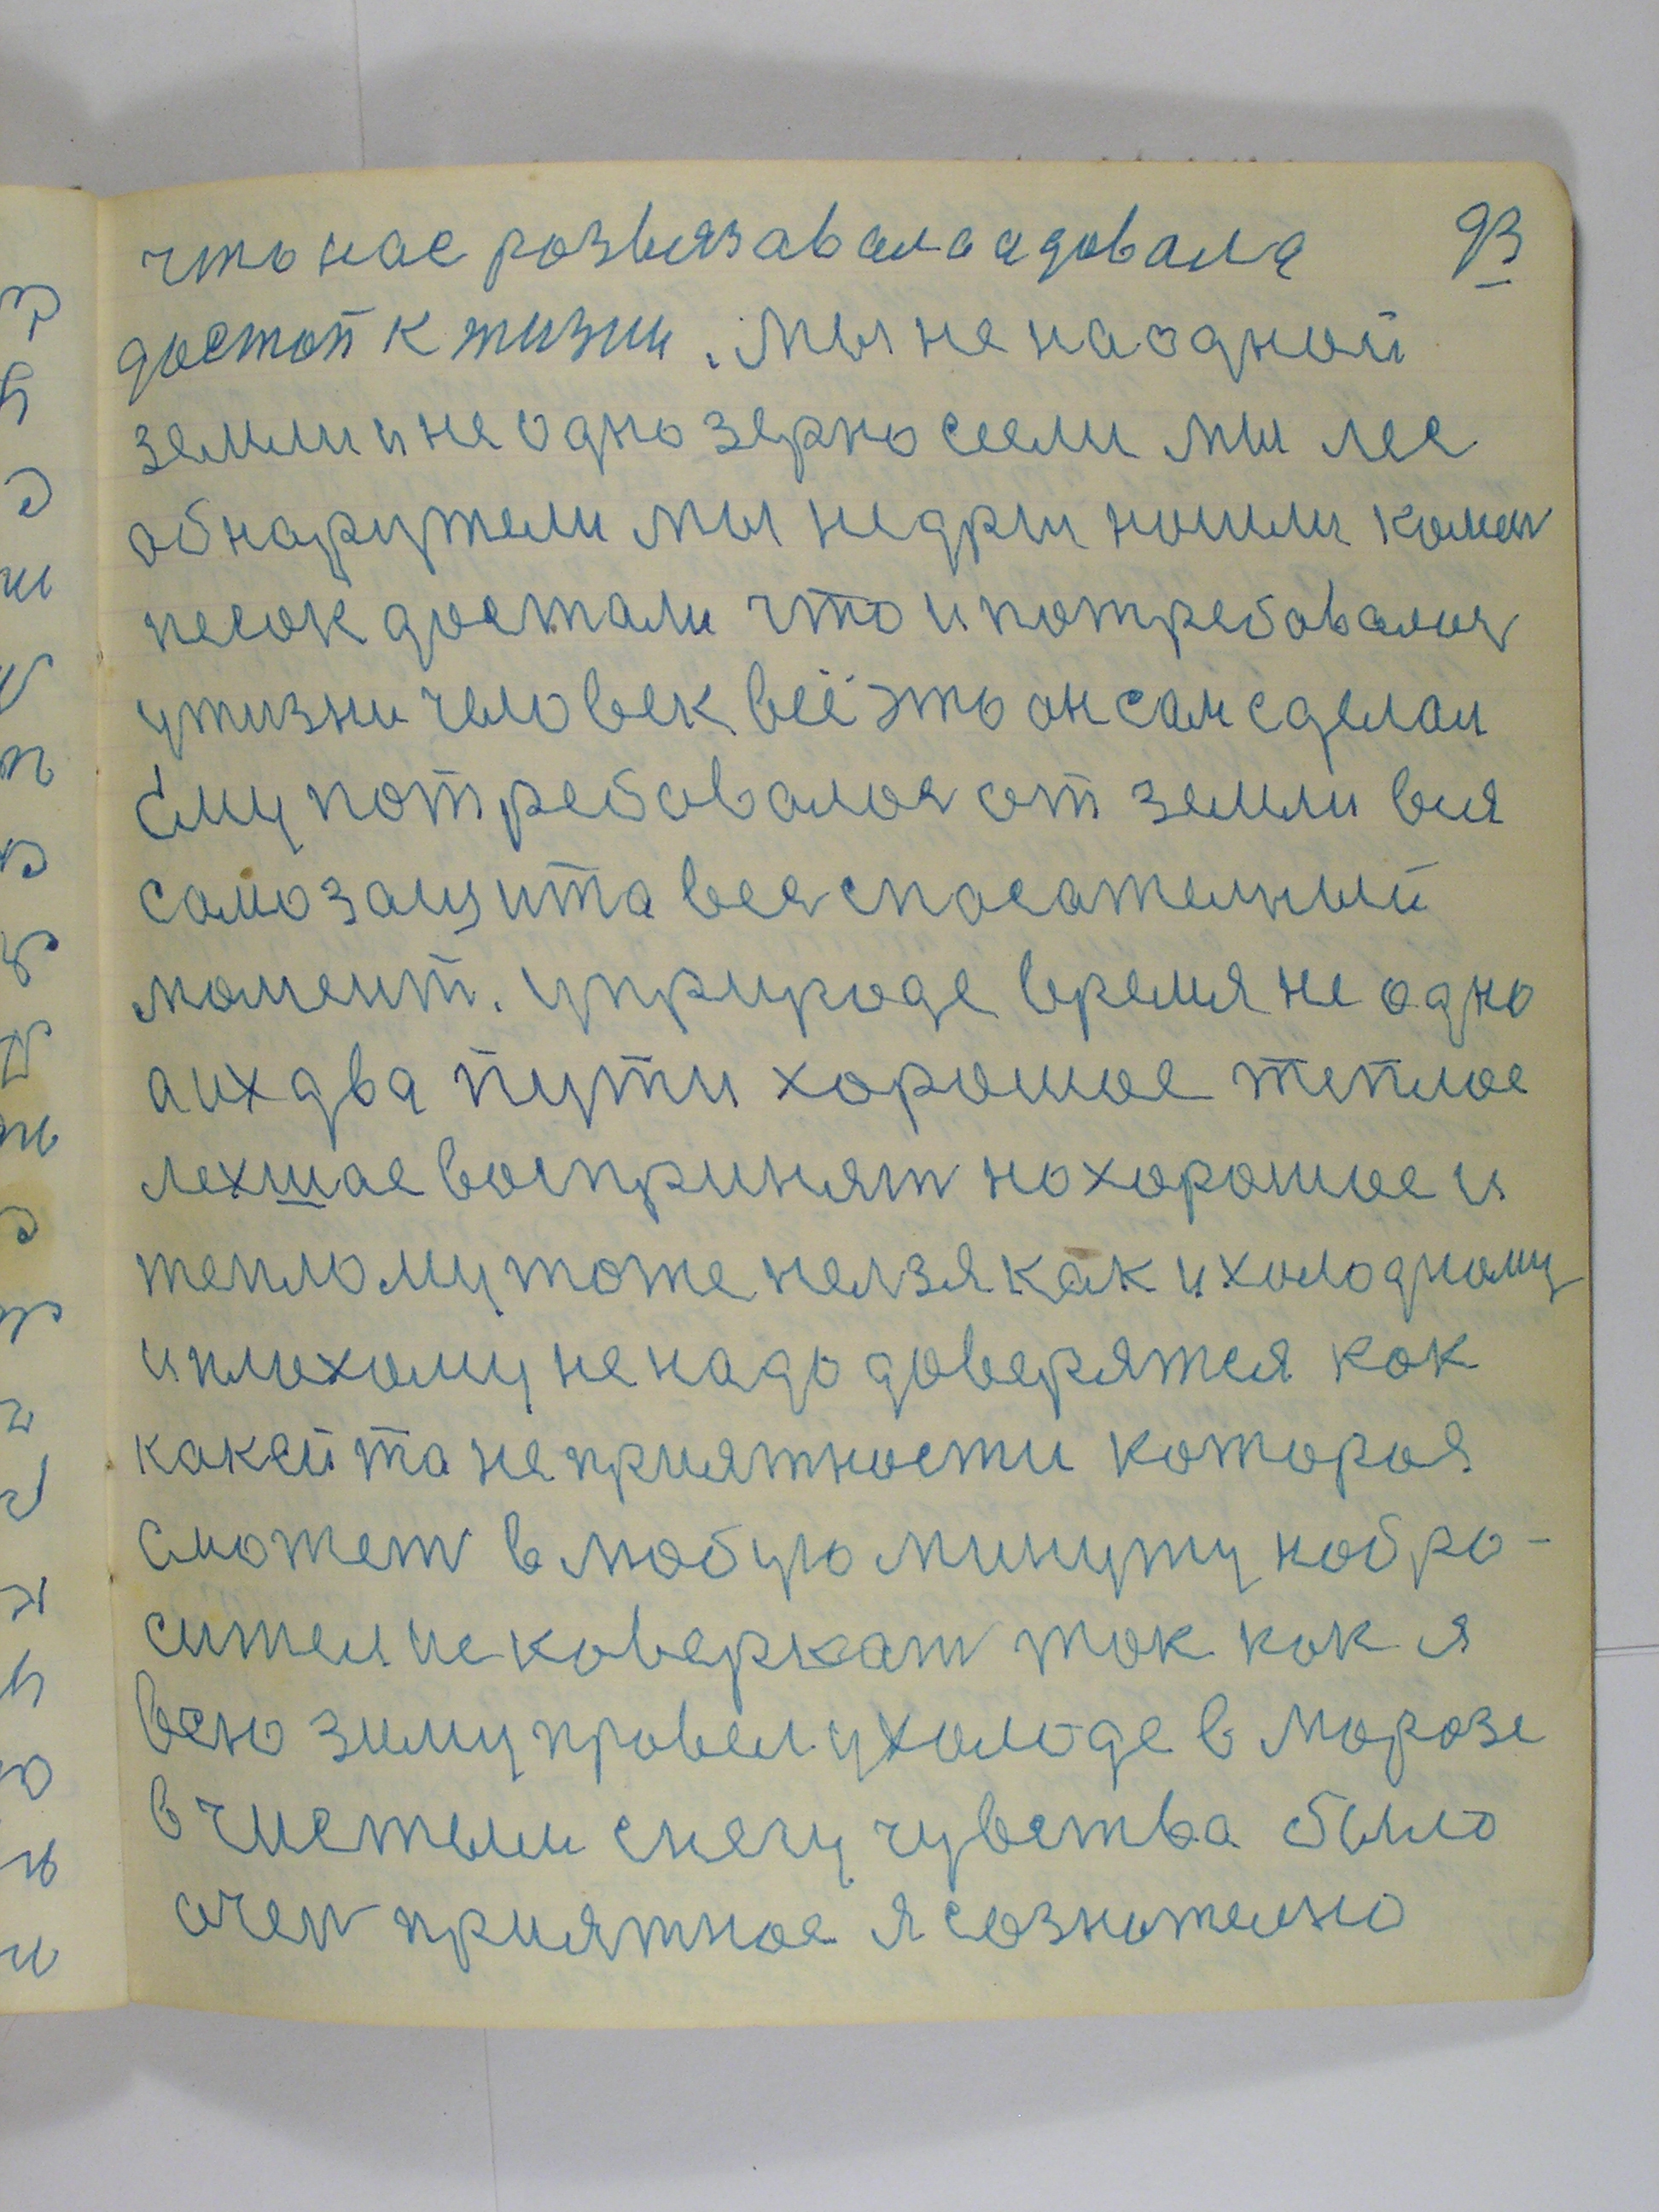 что нас розвиязавала а довала 93
достоп к жизни. Мы не на одной
земли и не одно зерно сеели мы лес
обнаружели мы недры нашли камен
песок достали что и потребовалося
у жизни человек всё это он сам сделал
Ему потребовалося от земли вся
самозащита вся спосателный
момент. у природе время не одно
а их два пути хорошое теплое
лехшае восприням но хорошое и
тепло му тоже нелзя как и холодному
и плохому не надо доверятся как
какейта неприятности которая
сможет в любую минуту набро-
сится исковеркат так как я
всю зиму провел у холоде в морозе
в чистым снегу чувства было
очен приятное я сознателно